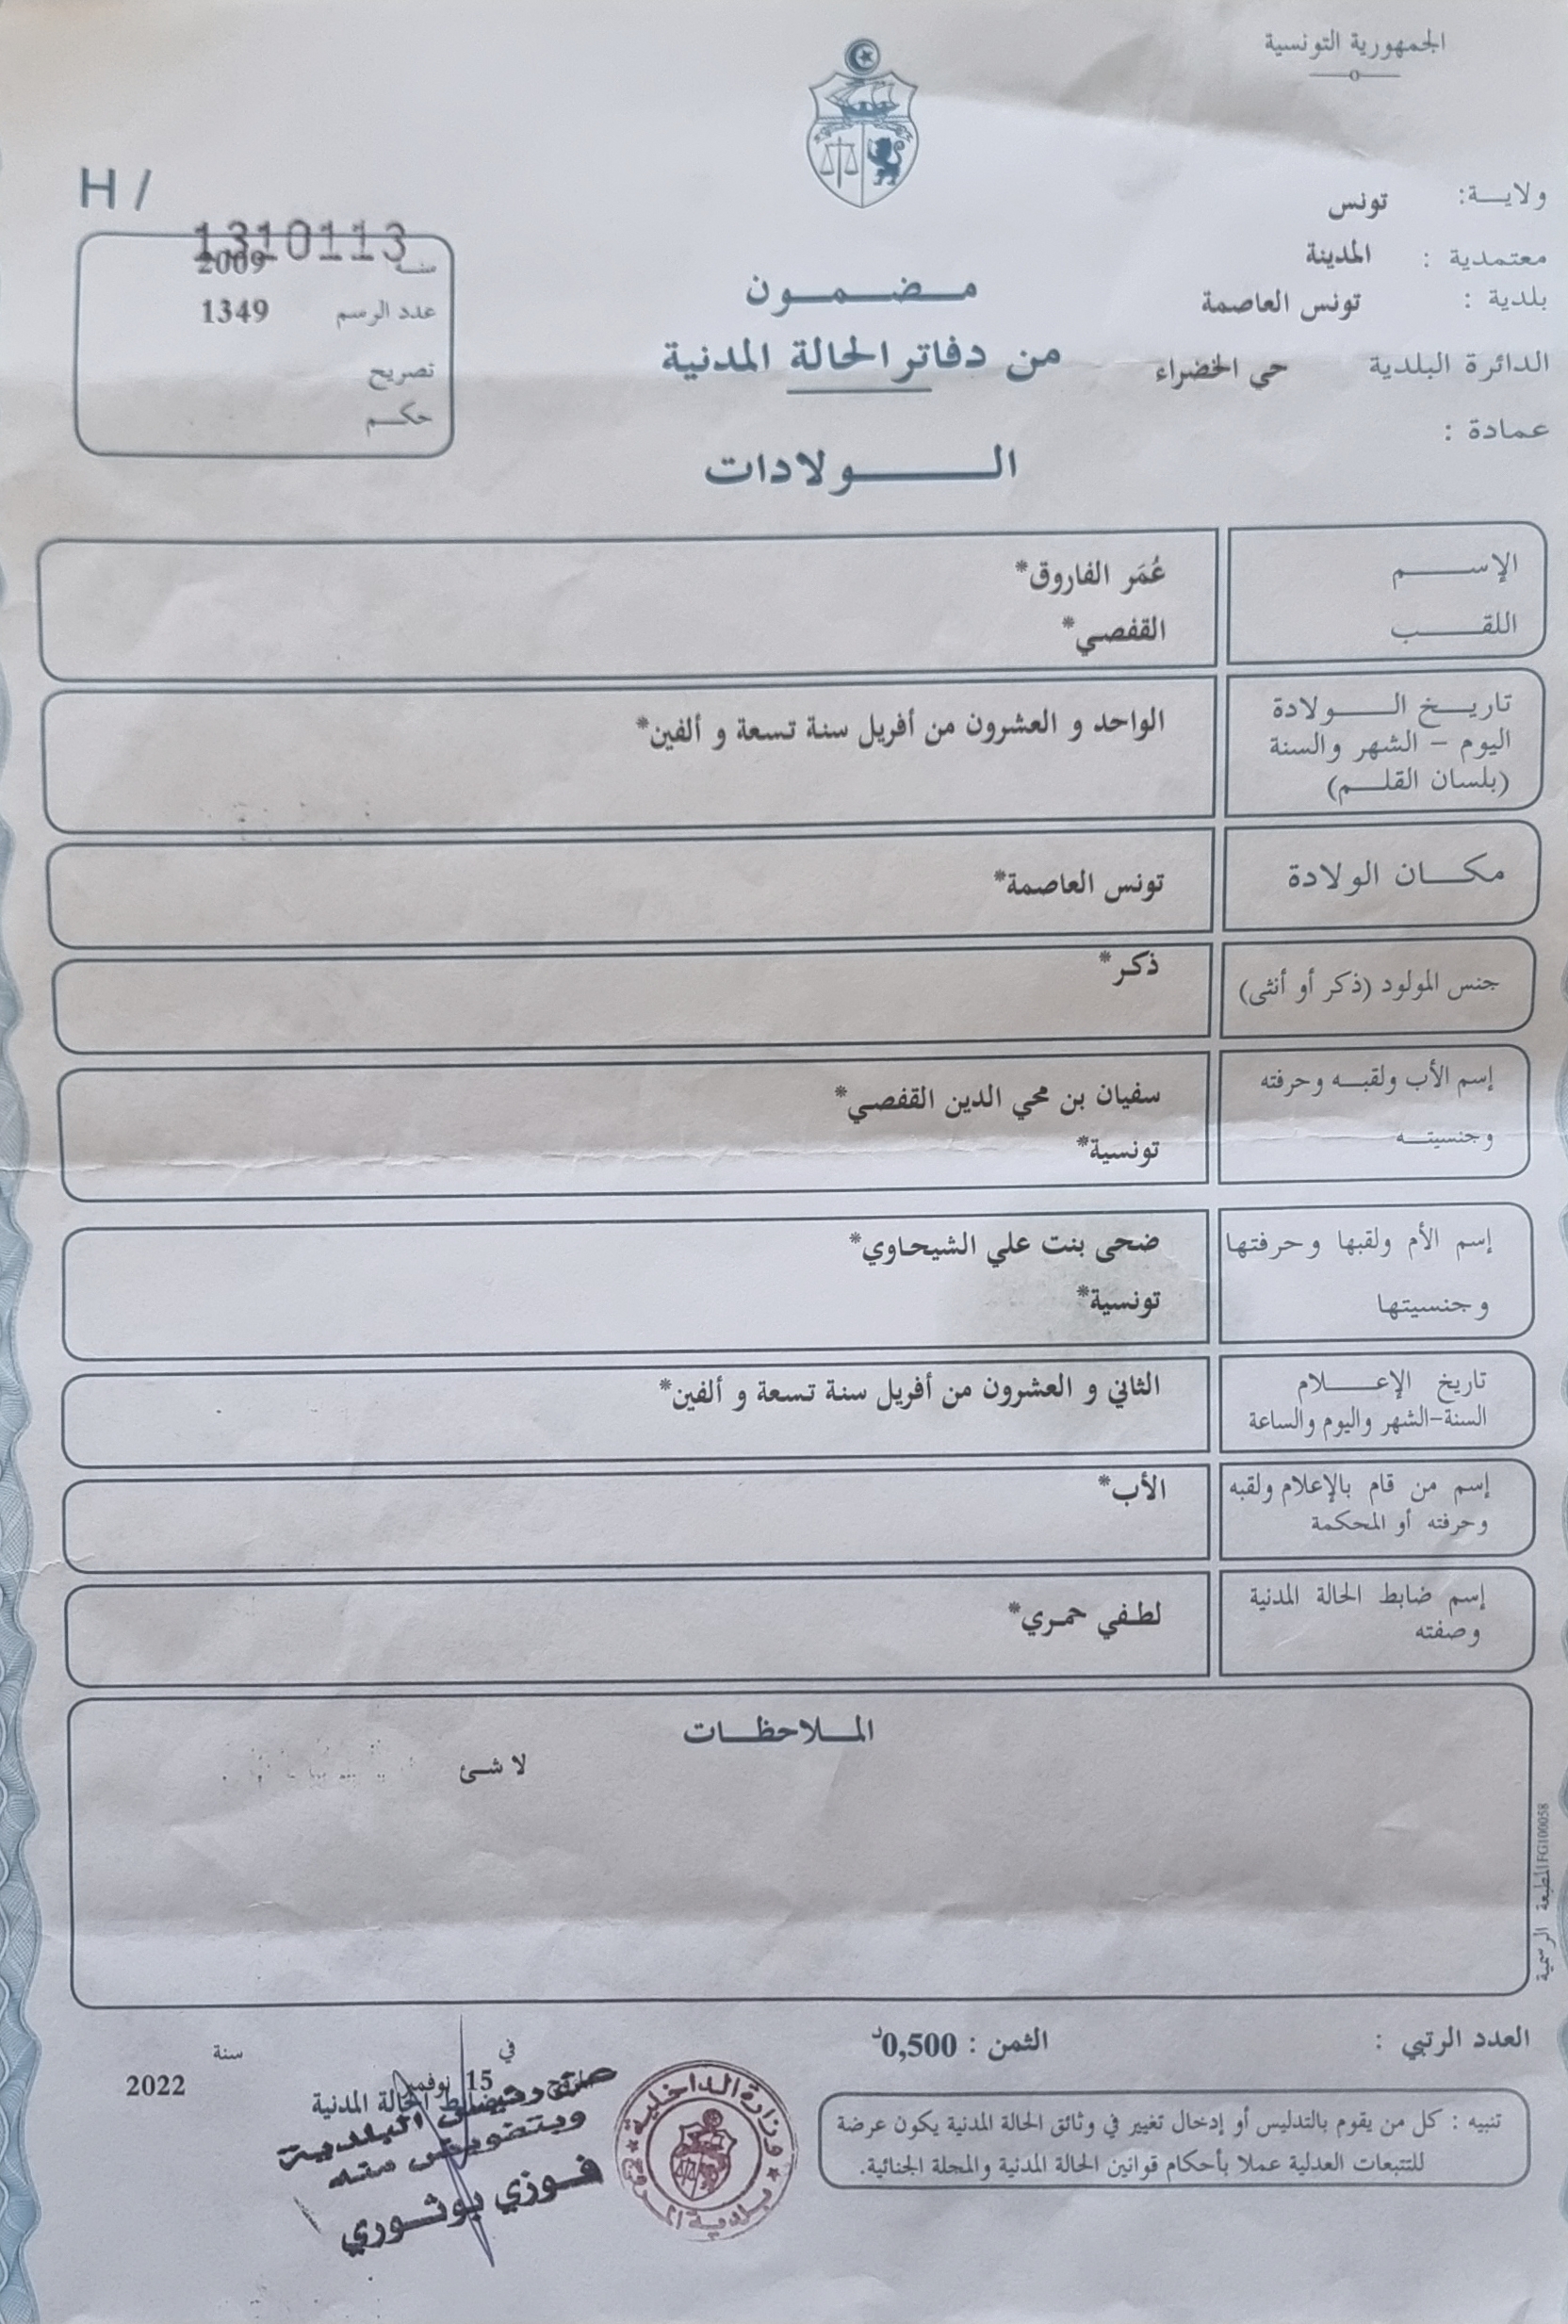 الجمهورية التونسية
ولايـــة: تونس
معتمدية : المدينة
بلدية : تونس العاصمة
الدائرة البلدية حي الخضراء
عمادة :
H /
1310113
سنـــة 2009
عدد الرسم 1349
تصريح
حكـــم
مـــضـــمـــون
من دفاتر الحالة المدنية
الـــــولادات
الإســـــم عُمَر الفاروق*
اللقـــــب القفصي*
تاريـــخ الـــــولادة
اليوم - الشهر والسنة
(بلسان القلـــم)
الواحد و العشرون من أفريل سنة تسعة و ألفين*
مكـــان الولادة تونس العاصمة*
جنس المولود (ذكر أو أنثى) ذكر*
إسم الأب ولقبـــه وحرفته سفيان بن محي الدين القفصي*
وجنسيتـــه تونسية*
إسم الأم ولقبها وحرفتها ضحى بنت علي الشيحاوي*
وجنسيتها تونسية*
تاريخ الإعـــــلام
السنة-الشهر واليوم والساعة
الثاني و العشرون من أفريل سنة تسعة و ألفين*
إسم من قام بالإعلام ولقبه
وحرفته أو المحكمة
الأب*
إسم ضابط الحالة المدنية
وصفته
لطفي حمري*
المـــلاحظـــات
لا شئ
المطبعة الرسمية IFG100058
العدد الرتبي :
الثمن : 0,500د
في 15 نوفمبر سنة 2022
ضابط الحالة المدنية
رئيس البلدية
وبتفويض منه
فوزي بوثوري
وزارة الداخلية
تنبيه : كل من يقوم بالتدليس أو إدخال تغيير في وثائق الحالة المدنية يكون عرضة
للتتبعات العدلية عملا بأحكام قوانين الحالة المدنية والمجلة الجنائية.